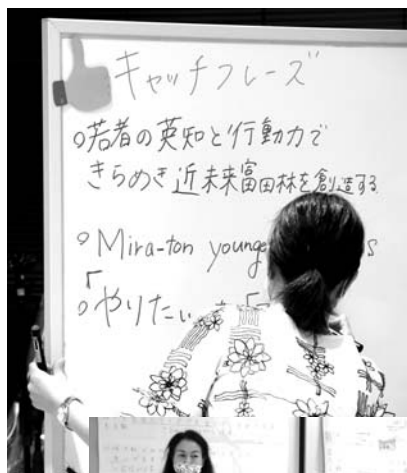 キャッチフレーズ
○若者の英知と行動力で
きらめき近未来富田林を創造する
○Mira-ton
○「やりたい